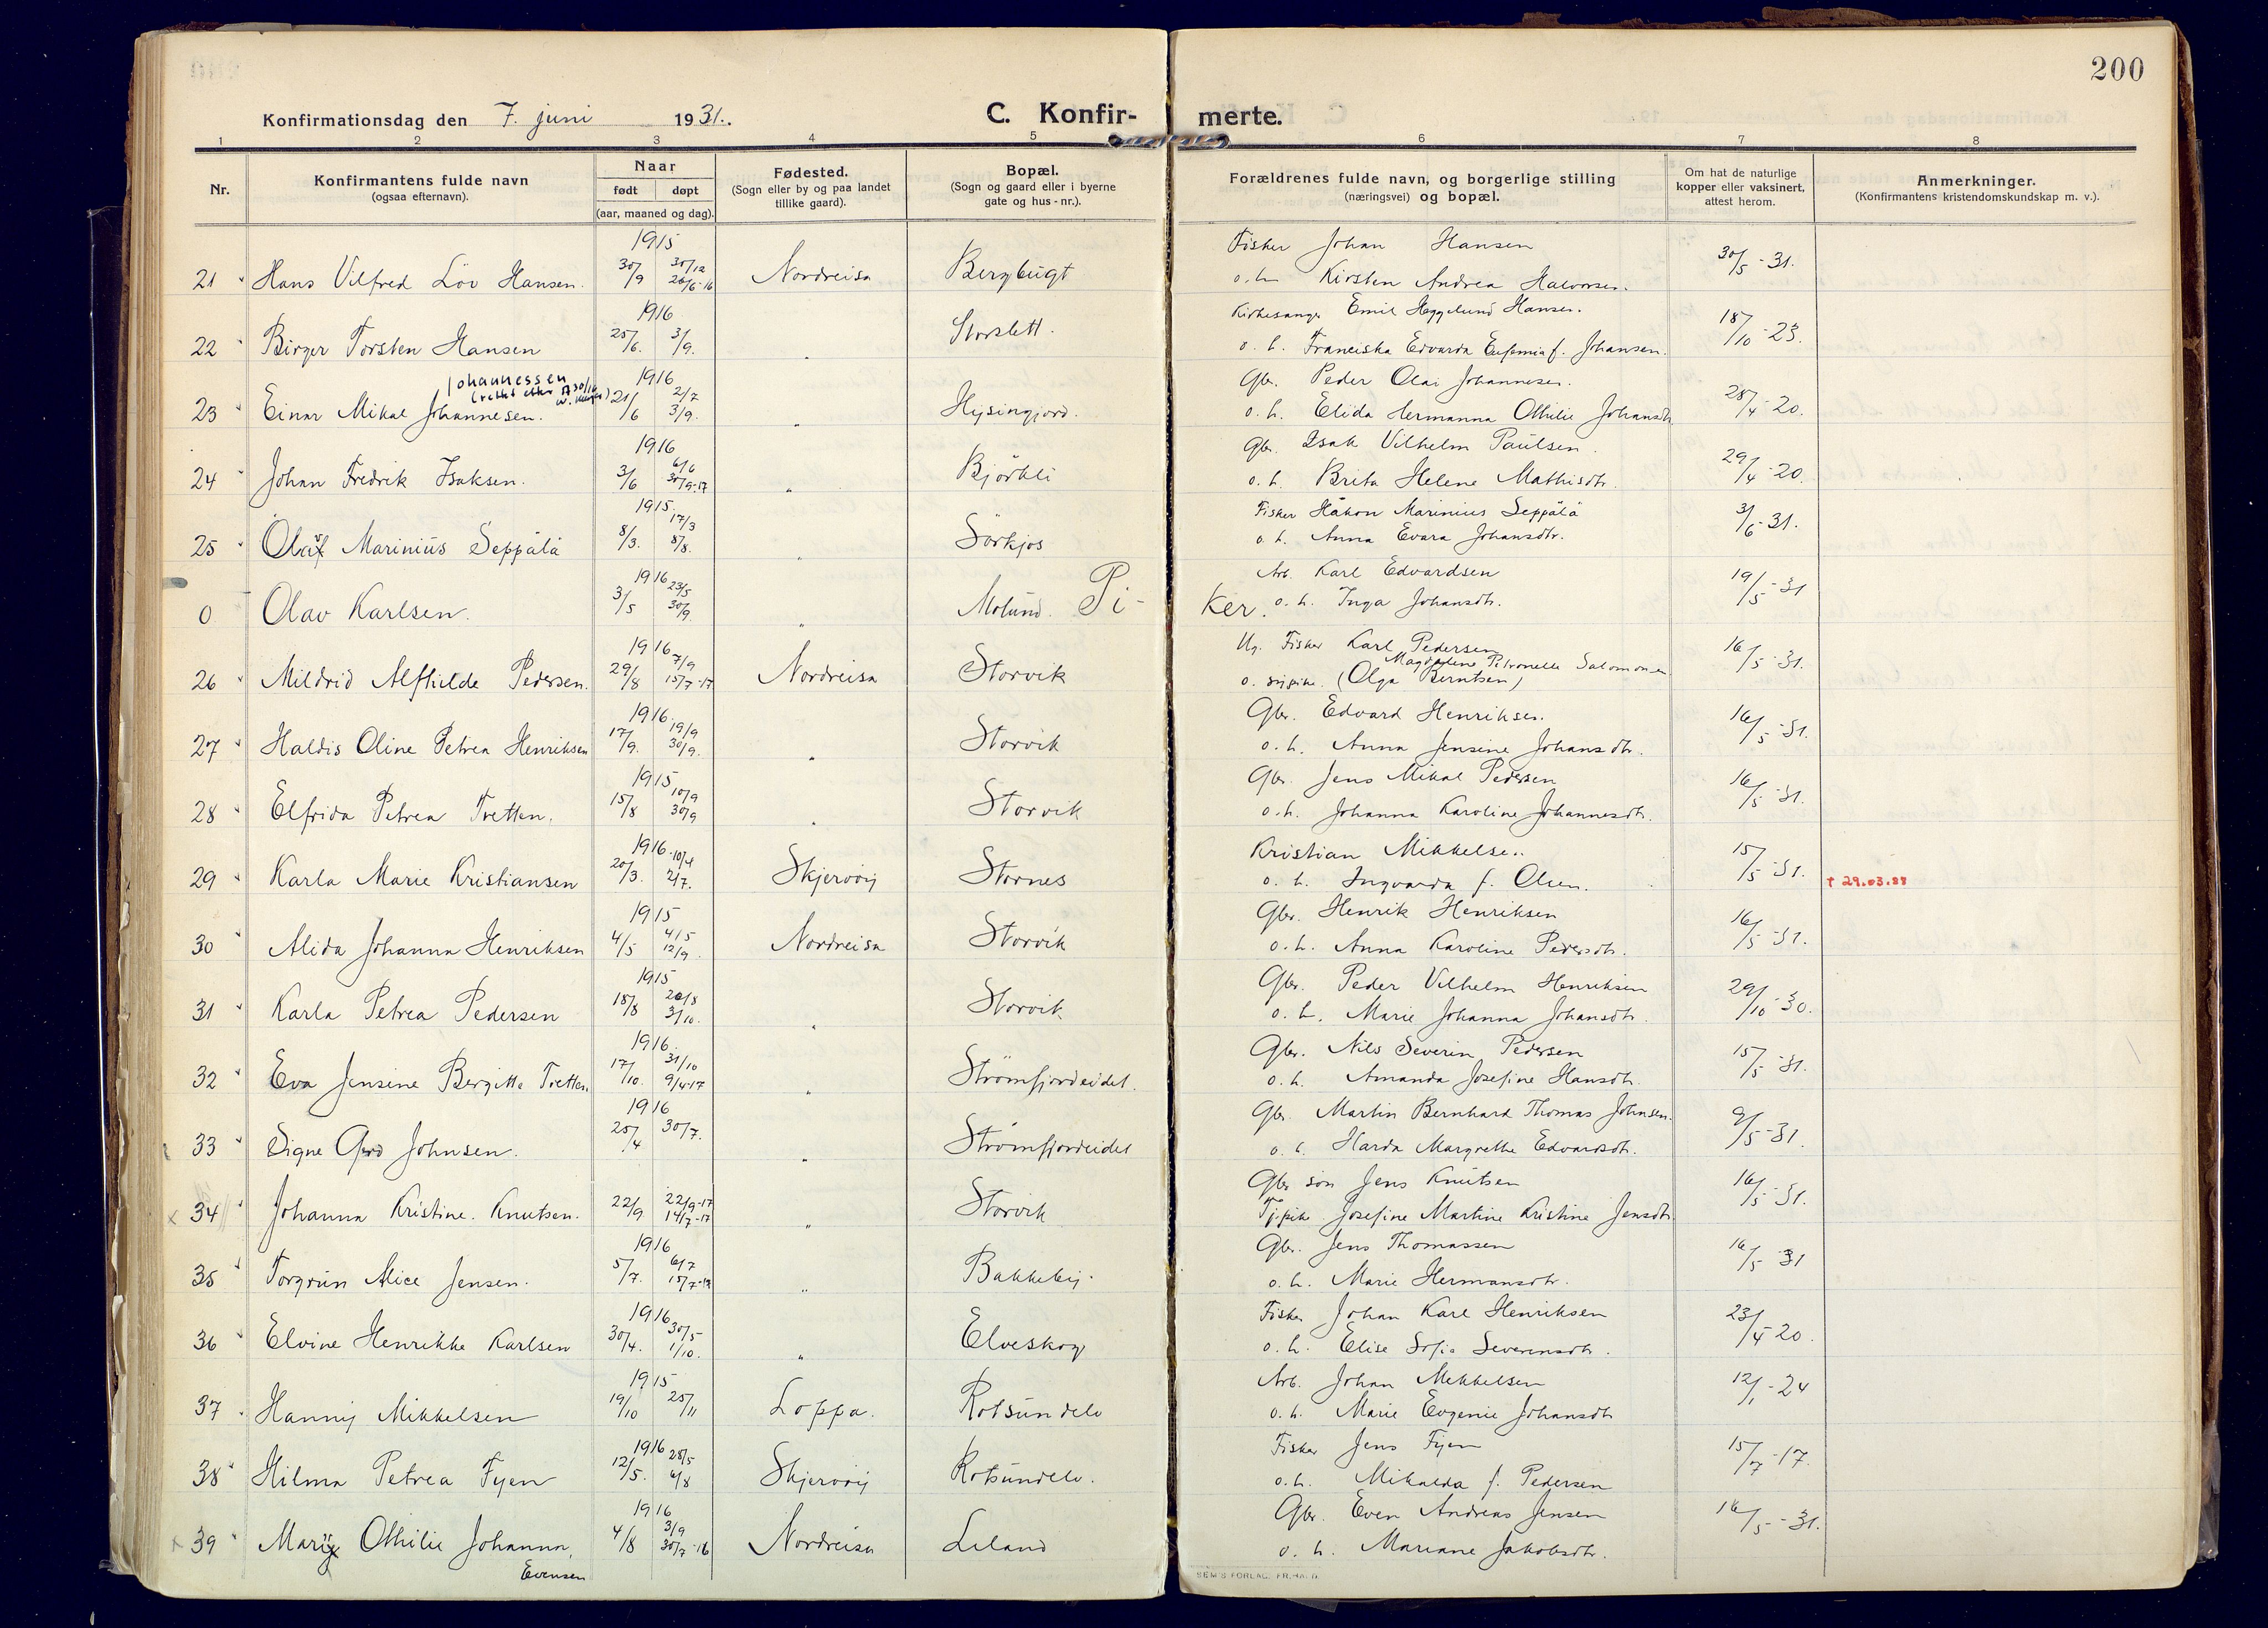 200
Konfirmationsdag den 7. juni 1931.
C. Konfir-
merte.
1 2 3 4 5 6 7 8
Nr.
Konfirmantens fulde navn
(ogsaa efternavn).
Naar
født døpt
(aar, maaned og dag).
Fødested.
(Sogn eller by og paa landet
tillike gaard).
Bopæl.
(Sogn og gaard eller i byerne
gate og hus-nr.).
Forældrenes fulde navn, og borgerlige stilling
(næringsvei) og bopæl.
Om hat de naturlige
kopper eller vaksinert,
attest herom.
Anmerkninger.
(Konfirmantens kristendomskundskap m. v.).
1915
Fisker Johan Hansen
21 Hans Vilfred Löv Hansen. 30/9 30/12 26/6-16 Nordreisa Bergbugt
o. h. Kirsten Andrea Halvorsen. 30/5-31.
1916
Kirkesanger Emil Heggelund Hansen.
22 Birger Torsten Hansen 25/6. 3/9. " Storslett.
o. h. Franciska Edvarda Eufemia f. Johansen. 18/10-23.
Johannessen
1916
Gbr. Peder Olai Johannesen.
23 Einar Mikal Johannesen. 21/6 2/7 3/9. " Hysingjord.
o. h. Elida Hermanna Othilie Johansdtr. 28/4-20.
1916
Gbr. Isak Vilhelm Paulsen.
24 Johan Fredrik Isaksen. 3/6 6/6 30/9-17 " Björkli
o. h. Brita Helene Mathisdtr. 29/4-20.
1915.
Fisker Håkon Marinius Seppälä
25 Olaf Marinius Seppälä 8/3. 17/3 8/8. " Sörkjos
o. h. Anna Evara Johansdtr. 3/6-31.
1916
Arb. Karl Edvardsen
0 Olav Karlsen. 3/5 23/5 30/9 " Molund. Pi-
ker. o. h. Inga Johansdtr. 19/5-31
1916
Ug. Fisker Karl Pedersen
Magdalene Petronelle Salomonsen
26 Mildrid Alfhilde Pedersen. 29/8 7/9 15/7-17 Nordreisa Storvik
o. (Olga Berntsen) 16/5-31.
1916.
Gbr. Edvard Henriksen.
27 Haldis Oline Petrea Henriksen 17/9. 19/9 30/9. " Storvik
o. h. Anna Jensine Johansdtr. 16/5-31.
1915
Gbr. Jens Mikal Pedersen
28 Elfrida Petrea Tretten. 15/8 10/9 30/9 " Storvik
o. h. Johanna Karoline Johannesdtr. 16/5-31.
1916.
Kristian Mikkelsen
29 Karla Marie Kristiansen 20/3. 10/4 2/7. Skjervöy Stornes
o. h. Ingvarda f. Olsen. 15/5-31. † 29.03.88
1915
Gbr. Henrik Henriksen
30 Alida Johanna Henriksen 4/5 4/5 12/9. Nordreisa Storvik
o. h. Anna Karoline Pedersdtr. 16/5-31.
1915
Gbr. Peder Vilhelm Henriksen
31 Karla Petrea Pedersen 18/8 20/8 3/10. " Storvik
o. h. Marie Johanna Johansdtr. 29/10-30.
1916.
Gbr. Nils Severin Pedersen
32 Eva Jensine Bergitte Tretten. 17/10. 31/10 9/4-17 " Strömfjordeidet.
o. h. Amanda Josefine Hansdtr. 15/5-31.
1916
Gbr. Martin Bernhard Thomas Johnsen.
33 Signe Gerd Johnsen. 25/4 30/7. " Strömfjordeidet
o. h. Harda Margrethe Edvardsdtr. 9/5-31.
Gbr. sön Jens Knutsen
x 34 Johanna Kristine. Knutsen. 22/9 22/9-17 14/7-17 " Storvik
Tj.pike Josefine Martine Kristine Jensdtr. 16/5-31.
1916
Gbr. Jens Thomassen
35 Torgrun Alice Jensen. 5/7. 6/7 15/7-17 " Bakkeby.
o. h. Marie Hermansdtr. 16/5-31
1916
Fisker Johan Karl Henriksen
36 Elvine Henrikke Karlsen 30/4. 30/5 1/10. " Elveskog
o. h. Elise Sofie Severinsdtr. 23/4-20.
1915
Arb. Johan Mikkelsen
37 Hanny Mikkelsen 19/10 25/11 Loppa. Rotsundelv
o. h. Marie Evgenie Johansdtr. 12/1-24
1916
Fisker Jens Fyen
38 Hilma Petrea Fyen 12/5. 28/5 6/8 Skjervöy Rotsundelv.
o. h. Mikalda f. Pedersen 15/7-17.
1916
Gbr. Even Andreas Jensen
x 39 Marie Othilie Johanna, 4/8 3/9 30/7-16 Nordreisa Leland
Evensen
o. h. Mariane Jakobsdtr. 16/5-31.
SEM'S FORLAG, FR.HALD.